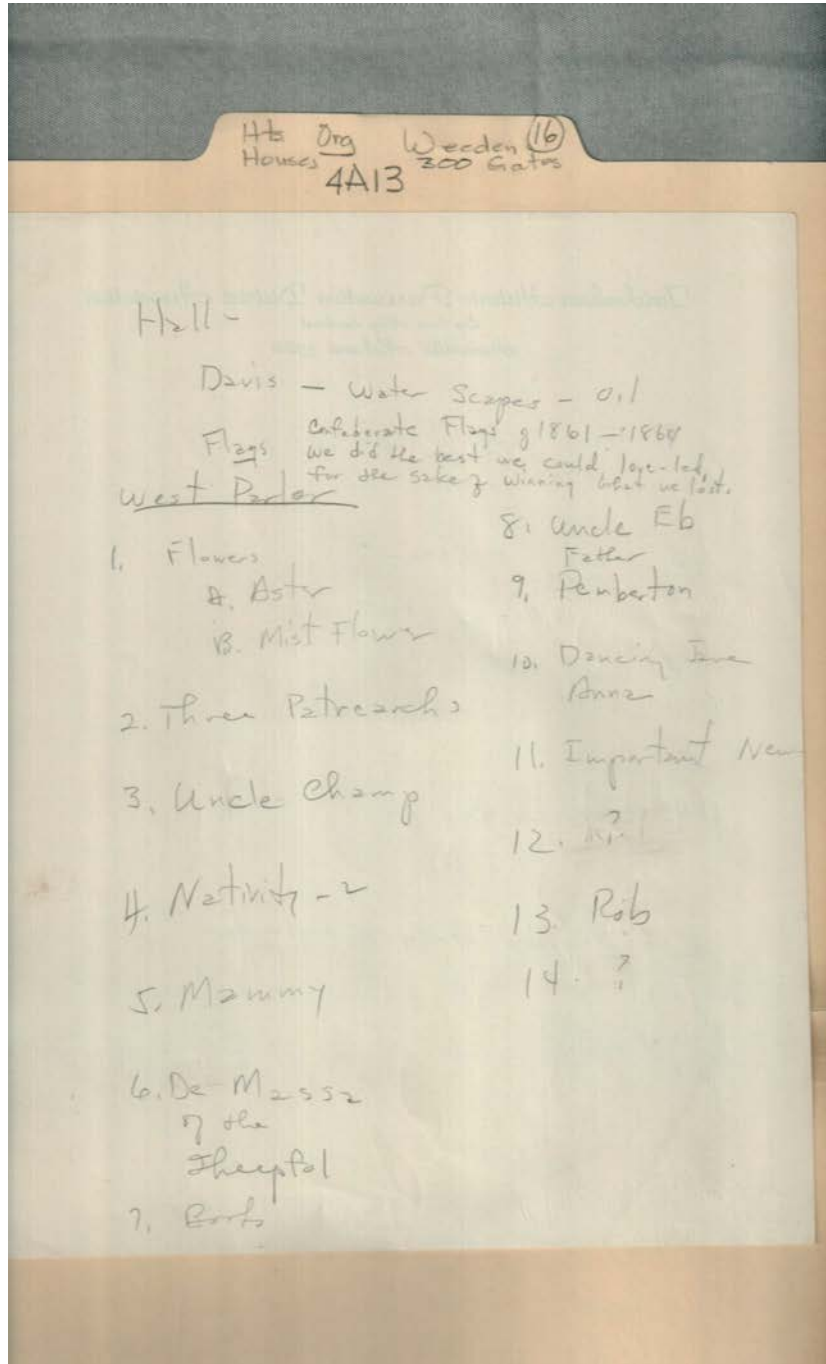 Hts Org Weeden 16
Houses 300 Gates
4A13
Hall -
Davis - Water Scapes - Oil
Flags Confederate Flags of 1861 - 1864
We did the best we could, love-led,
for the sake of winning what we lost.
West Parlor
1. Flowers
A. Aster
B. Mist Flower
2. Three Patrearchs
3. Uncle Champ
4. Nativity - 2
5. Mammy
6. De Massa
of the
Sheepfol
7.
8. Uncle Eb
Father
9. Pemberton
10. Dancing
Anna
11. Important New
12. ?
13. Rob
14. ?